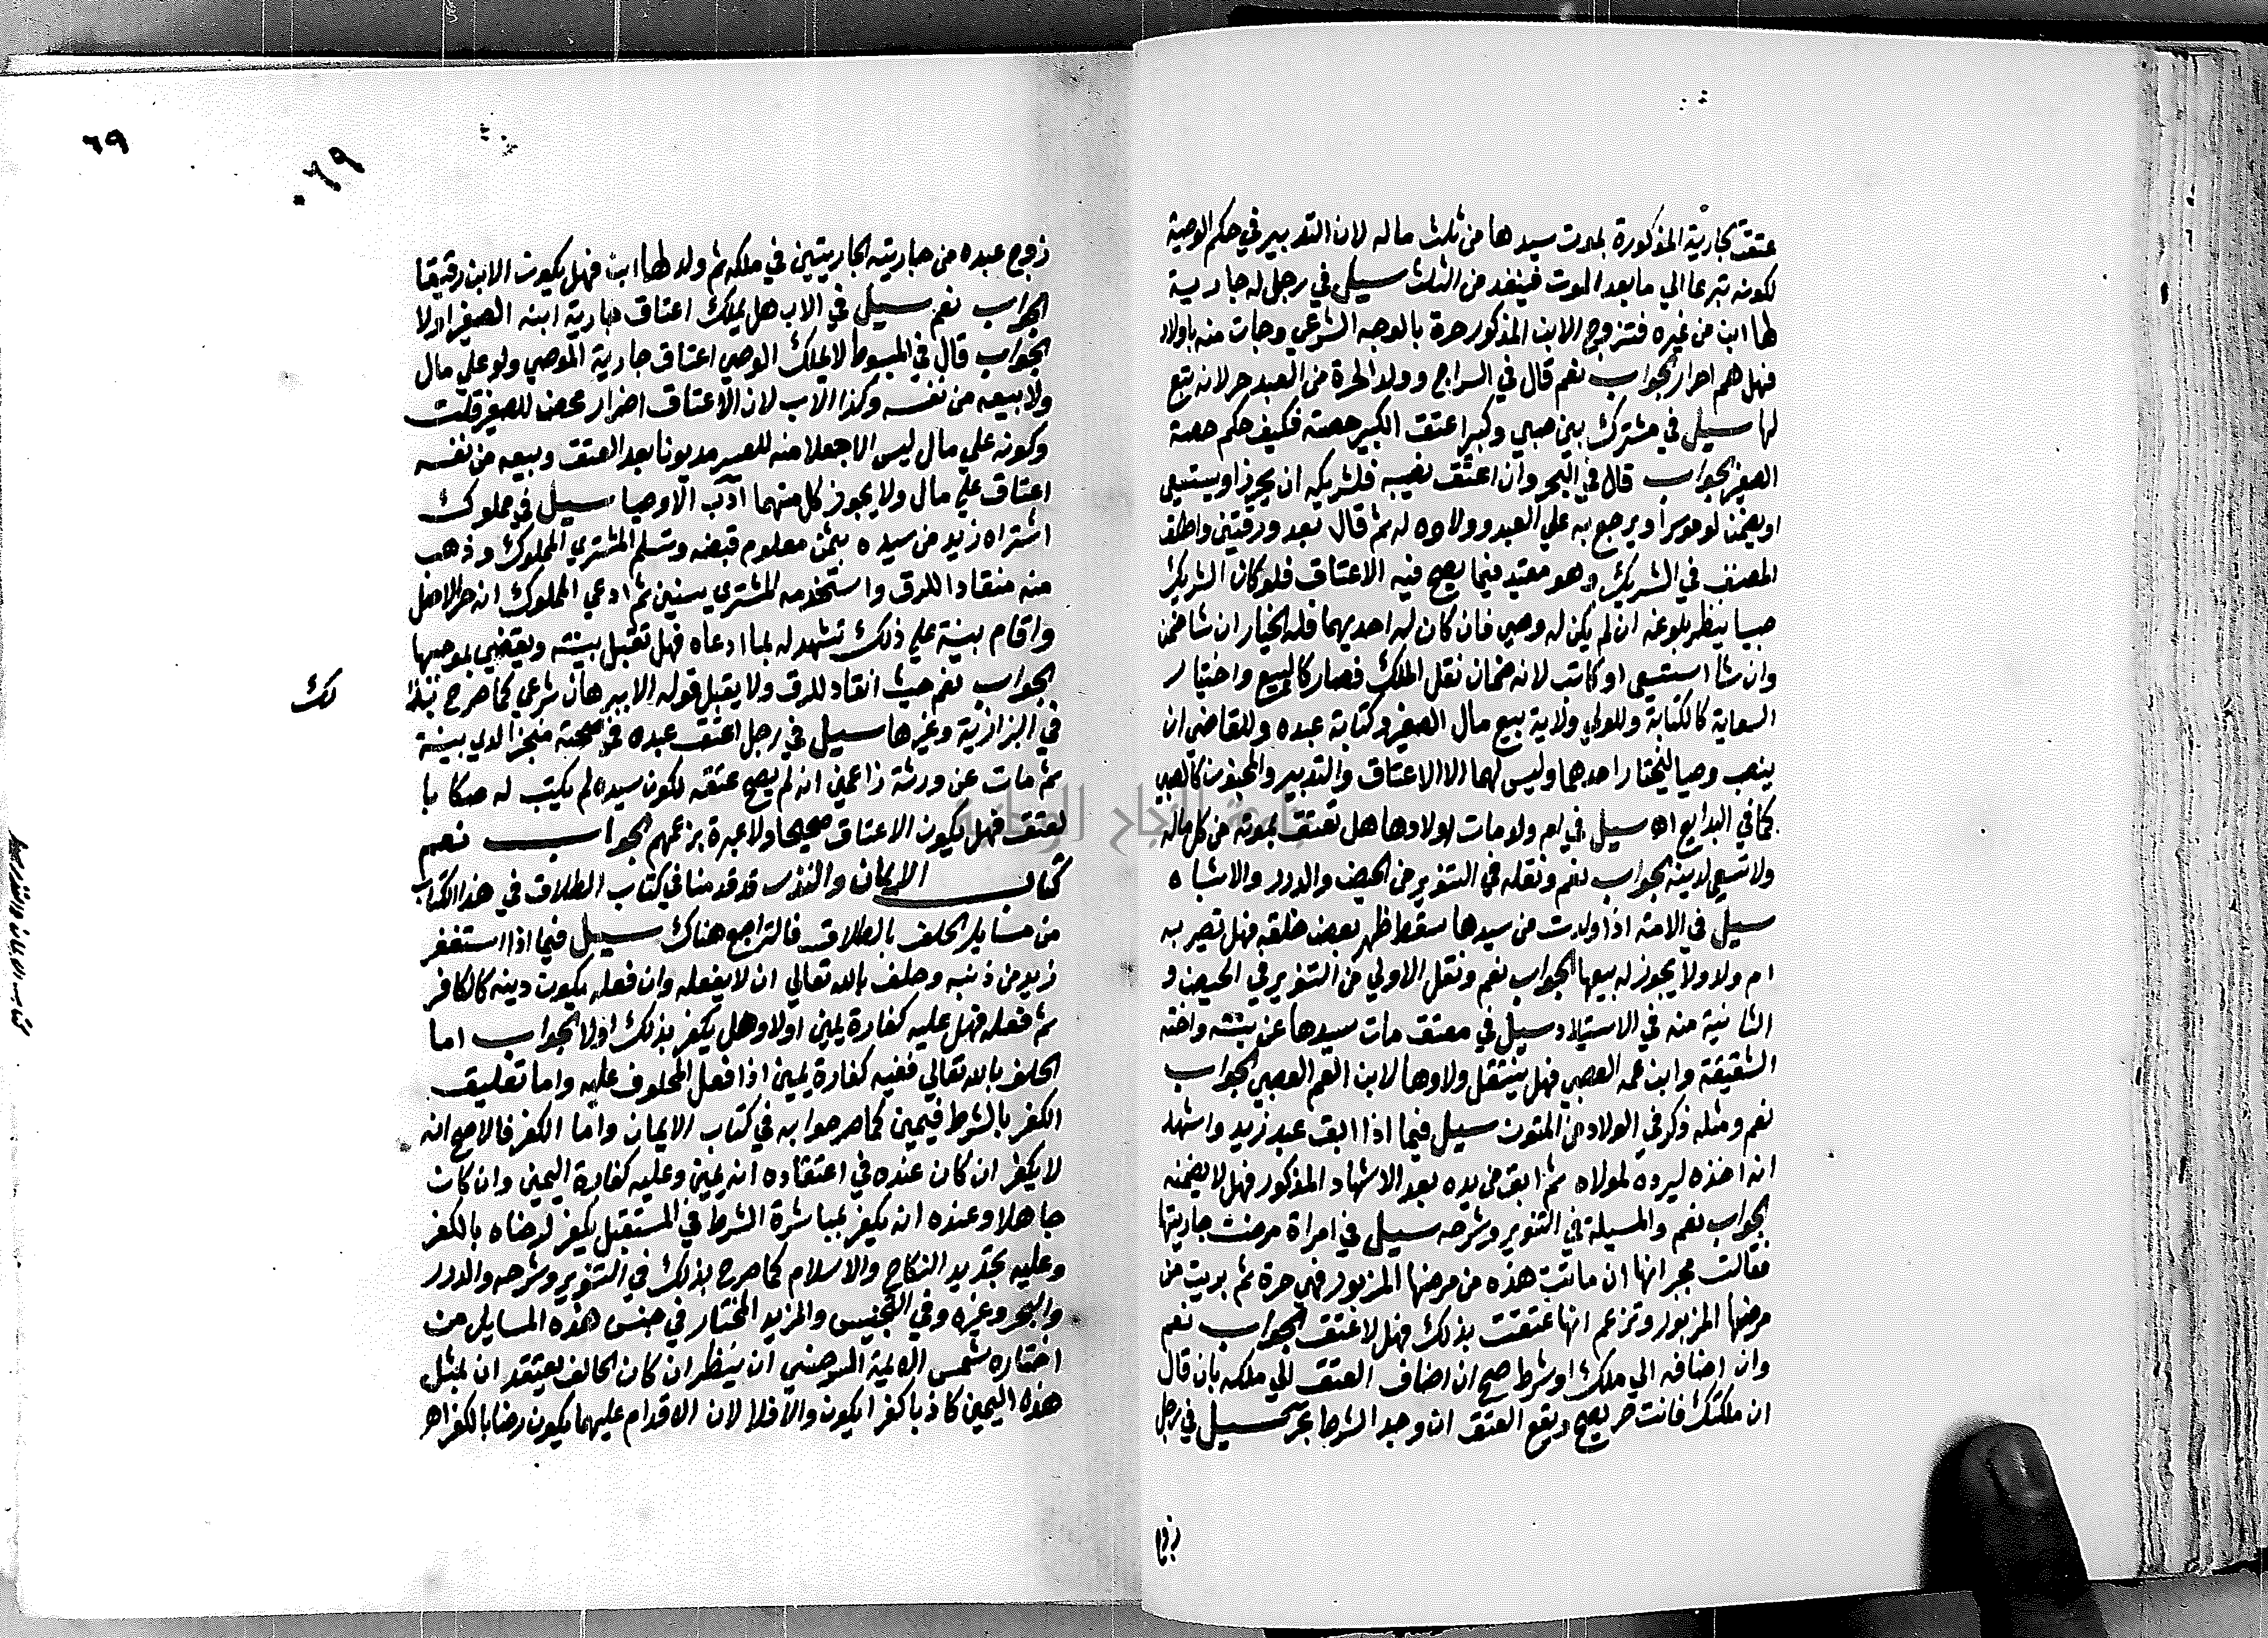 عتقت الجارية المذكورة بموت سيدها من ثلث ماله لان التدبير في حكم الوصية
لكونه تبرعا الي ما بعد الموت فينفذ من الثلث سيل في رجل له جارية
لها ابن من غيره فتزوج الابن المذكور حرة بالوجه الشرعي وجات منه باولاد
فهل هم احرار الجواب نعم قال في السراج وولد الحرة من العبد حر لانه يتبع
لها سيل في مشترك بين صبي وكبير اعتق الكبير حصته فكيف حكم حصة
الصغير الجواب قال في البحر وان اعتق نصيبه فلشريكه ان يحرر او يستسعي
او يضمن لو موسرا ويرجع به علي العبد وولاوه له ثم قال بعد ورقتين واطلق
المصنف في الشريك وهو مقيد فيما يصح فيه الاعتاق فلو كان الشريك
صبيا ينتظر بلوغه ان لم يكن له وصي فان كان له احديهما فله الخيار ان شا ضمن
وان شا استسعي او كاتب لانه ضمان نقل الملك فصار كالبيع واختيار
السعاية كالكتابة وللولي ولاية بيع مال الصغير وكتابة عبده وللقاضي ان
ينصب وصيا ليختار احدهما وليس لهما الا الاعتاق والتدبير والمجنون كالصبي
كما في البدايع اه سيل في ام ولد مات مولاها هل تعتق بموته من كل ماله
ولا تسعي لدينه الجواب نعم ونقله في التنوير من الحيض والدرر والاشباه
سيل في الامة اذا ولدت من سيدها سقط ظهر بعض خلقه فهل تصير به
ام ولد ولا يجوز له بيعها الجواب نعم ونقل الاولي من التنوير في الحيض و
الثانية منه في الاستيلاد سيل في معتقة مات سيدها عن بنته واخته
الشقيقة وابن عمه العصبي فهل ينتقل ولاوها لابن العم العصبي الجواب
نعم ومثله ذكر في الولاد من المتون سيل فيما اذا ابق عبد زيد واشهد
انه اخذه ليرده لمولاه ثم ابق من يده بعد الاشهاد المذكور فهل لا يضمنه
الجواب نعم والمسيلة في التنوير وشرحه سيل في امراة مرضت جاريتها
فقالت لجيرانها ان ماتت هذه من مرضها المزبور فهي حرة ثم بريت من
مرضها المزبور وتزعم انها عتقت بذلك فهل لا عتق الجواب نعم
وان اضافه الي ملك او شرط صح ان اضاف العتق الي ملكه بان قال
ان ملكتك فانت حر يصح ويقع العتق ان وجد الشرط سيل في رجل
زوج
٦٩
٦٩
زوج عبده من جاريته الجاريتين في ملكه ثم ولد لها ابن فهل يكون الابن رقيقا
الجواب نعم سيل في الاب هل يملك اعتاق جارية ابنه الصغير او لا
الجواب قال في المبسوط لا يملك الوصي اعتاق جارية الموصي ولو علي مال
ولا بيعه من نفسه وكذا الاب لان الاعتاق اضرار محض للصغير قلت
وكونه علي مال ليس الا جعلا منه للعبد مديونا بعد العتق وبيعه من نفسه
اعتاق علي مال ولا يجوز كل منهما ادب الاوصيا سيل في مملوك
اشتراه زيد من سيده بثمن معلوم قبضه وتسلم المشتري المملوك وذهب
منه منقادا للرق واستخدمه المشتري سنين ثم ادعي المملوك انه حر الاصل
واقام بينة علي ذلك تشهد له بما ادعاه فهل تقبل بينته ويقضي بموجبها
الجواب نعم حيث انقاد للرق ولا يقبل قوله الا ببرهان شرعي كما صرح بذا
لك
في البزازية وغيرها سيل في رجل اعتق عبده في صحته منجزا لدي بينة
ثم مات عن ورثة زاعمين انه لم يصح عتقه لكون سيده لم يكتب له صكا با
لعتق فهل يكون الاعتاق صحيحا ولا عبرة بزعمهم الجواب نعم
كتاب الايمان والنذر قد قدمنا في كتاب الطلاق في هذا الكتاب
من مسايل الحلف بالطلاق فالتراجع هناك سيل فيما اذا استغفر
زيد من ذنبه وحلف بالله تعالي ان لا يفعله وان فعله يكون دينه كالكافر
ثم فعله فهل عليه كفارة يمين اولا وهل يكفر بذلك اولا الجواب اما
الحلف بالله تعالي ففيه كفارة يمين اذا فعل المحلوف عليه واما تعليق
الكفر بالشرط فيمين كما صرحوا به في كتاب الايمان واما الكفر فالاصح انه
لا يكفر ان كان عنده في اعتقاده انه يمين وعليه كفارة اليمين وان كان
جاهلا وعنده انه يكفر بمباشرة الشرط في المستقبل يكفر لرضاه بالكفر
وعليه تجديد النكاح والاسلام كما صرح بذلك في التنوير وشرحه والدرر
والبحر وغيره وفي التجنيس والمزيد المختار في جنس هذه المسايل من
اختاره شمس الايمة السرخسي ان ينظر ان كان الحالف يعتقد ان بمثل
هذه اليمين كاذبا كفرا يكون والا فلا لان الاقدام عليهما يكون رضا بالكفر اه
جامعة النجاح الوطنية